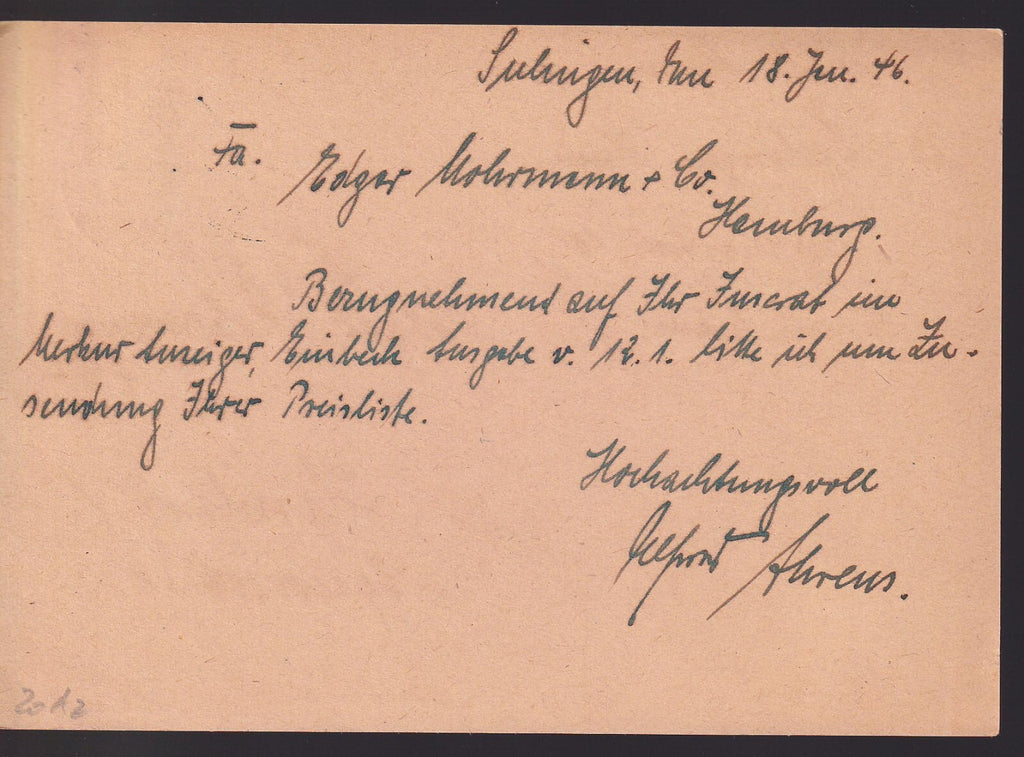 Sulingen, den 18. Jan. 46.
Fa.
Edgar Mohrmann + Co.
Hamburg.
Bezugnehmend auf Ihr Inserat im
Merkur Anzeiger, Einbeck Ausgabe v. 12.1. bitte ich um Zu-
sendung Ihrer Preisliste.
Hochachtungsvoll
Alfred Ahrens.